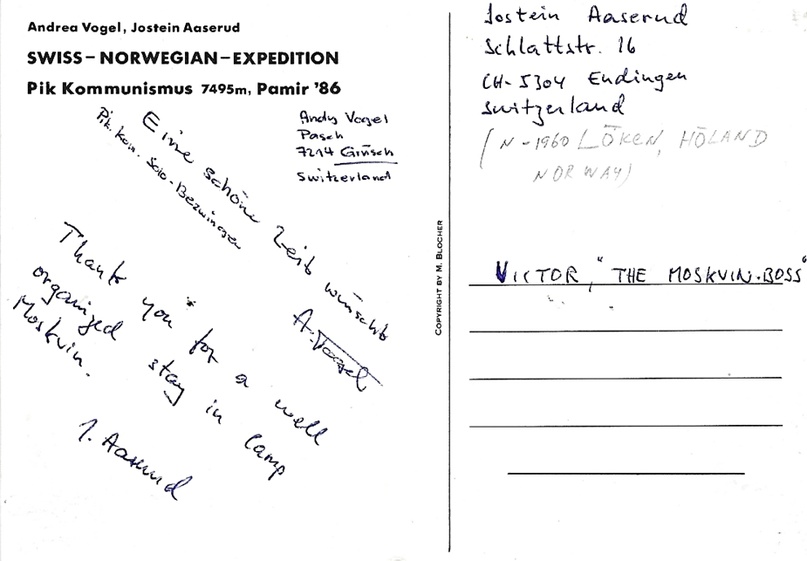 Andrea Vogel, Jostein Aaserud
SWISS – NORWEGIAN – EXPEDITION
Pik Kommunismus 7495m, Pamir '86
Andy Vogel
Pasch
7214 Grüsch
Switzerland
Eine schöne Zeit wünscht
Pik. Kom. Solo-Bezwinger
A. Vogel
Thank you for a well
organized stay in Camp
Moskvin.
J. Aaserud
COPYRIGHT BY M. BLOCHER
Jostein Aaserud
Schlattstr. 16
CH-5304 Endingen
Switzerland
(N-1960 LÖKEN, HÖLAND
NORWAY)
VICTOR, "THE MOSKVIN-BOSS"